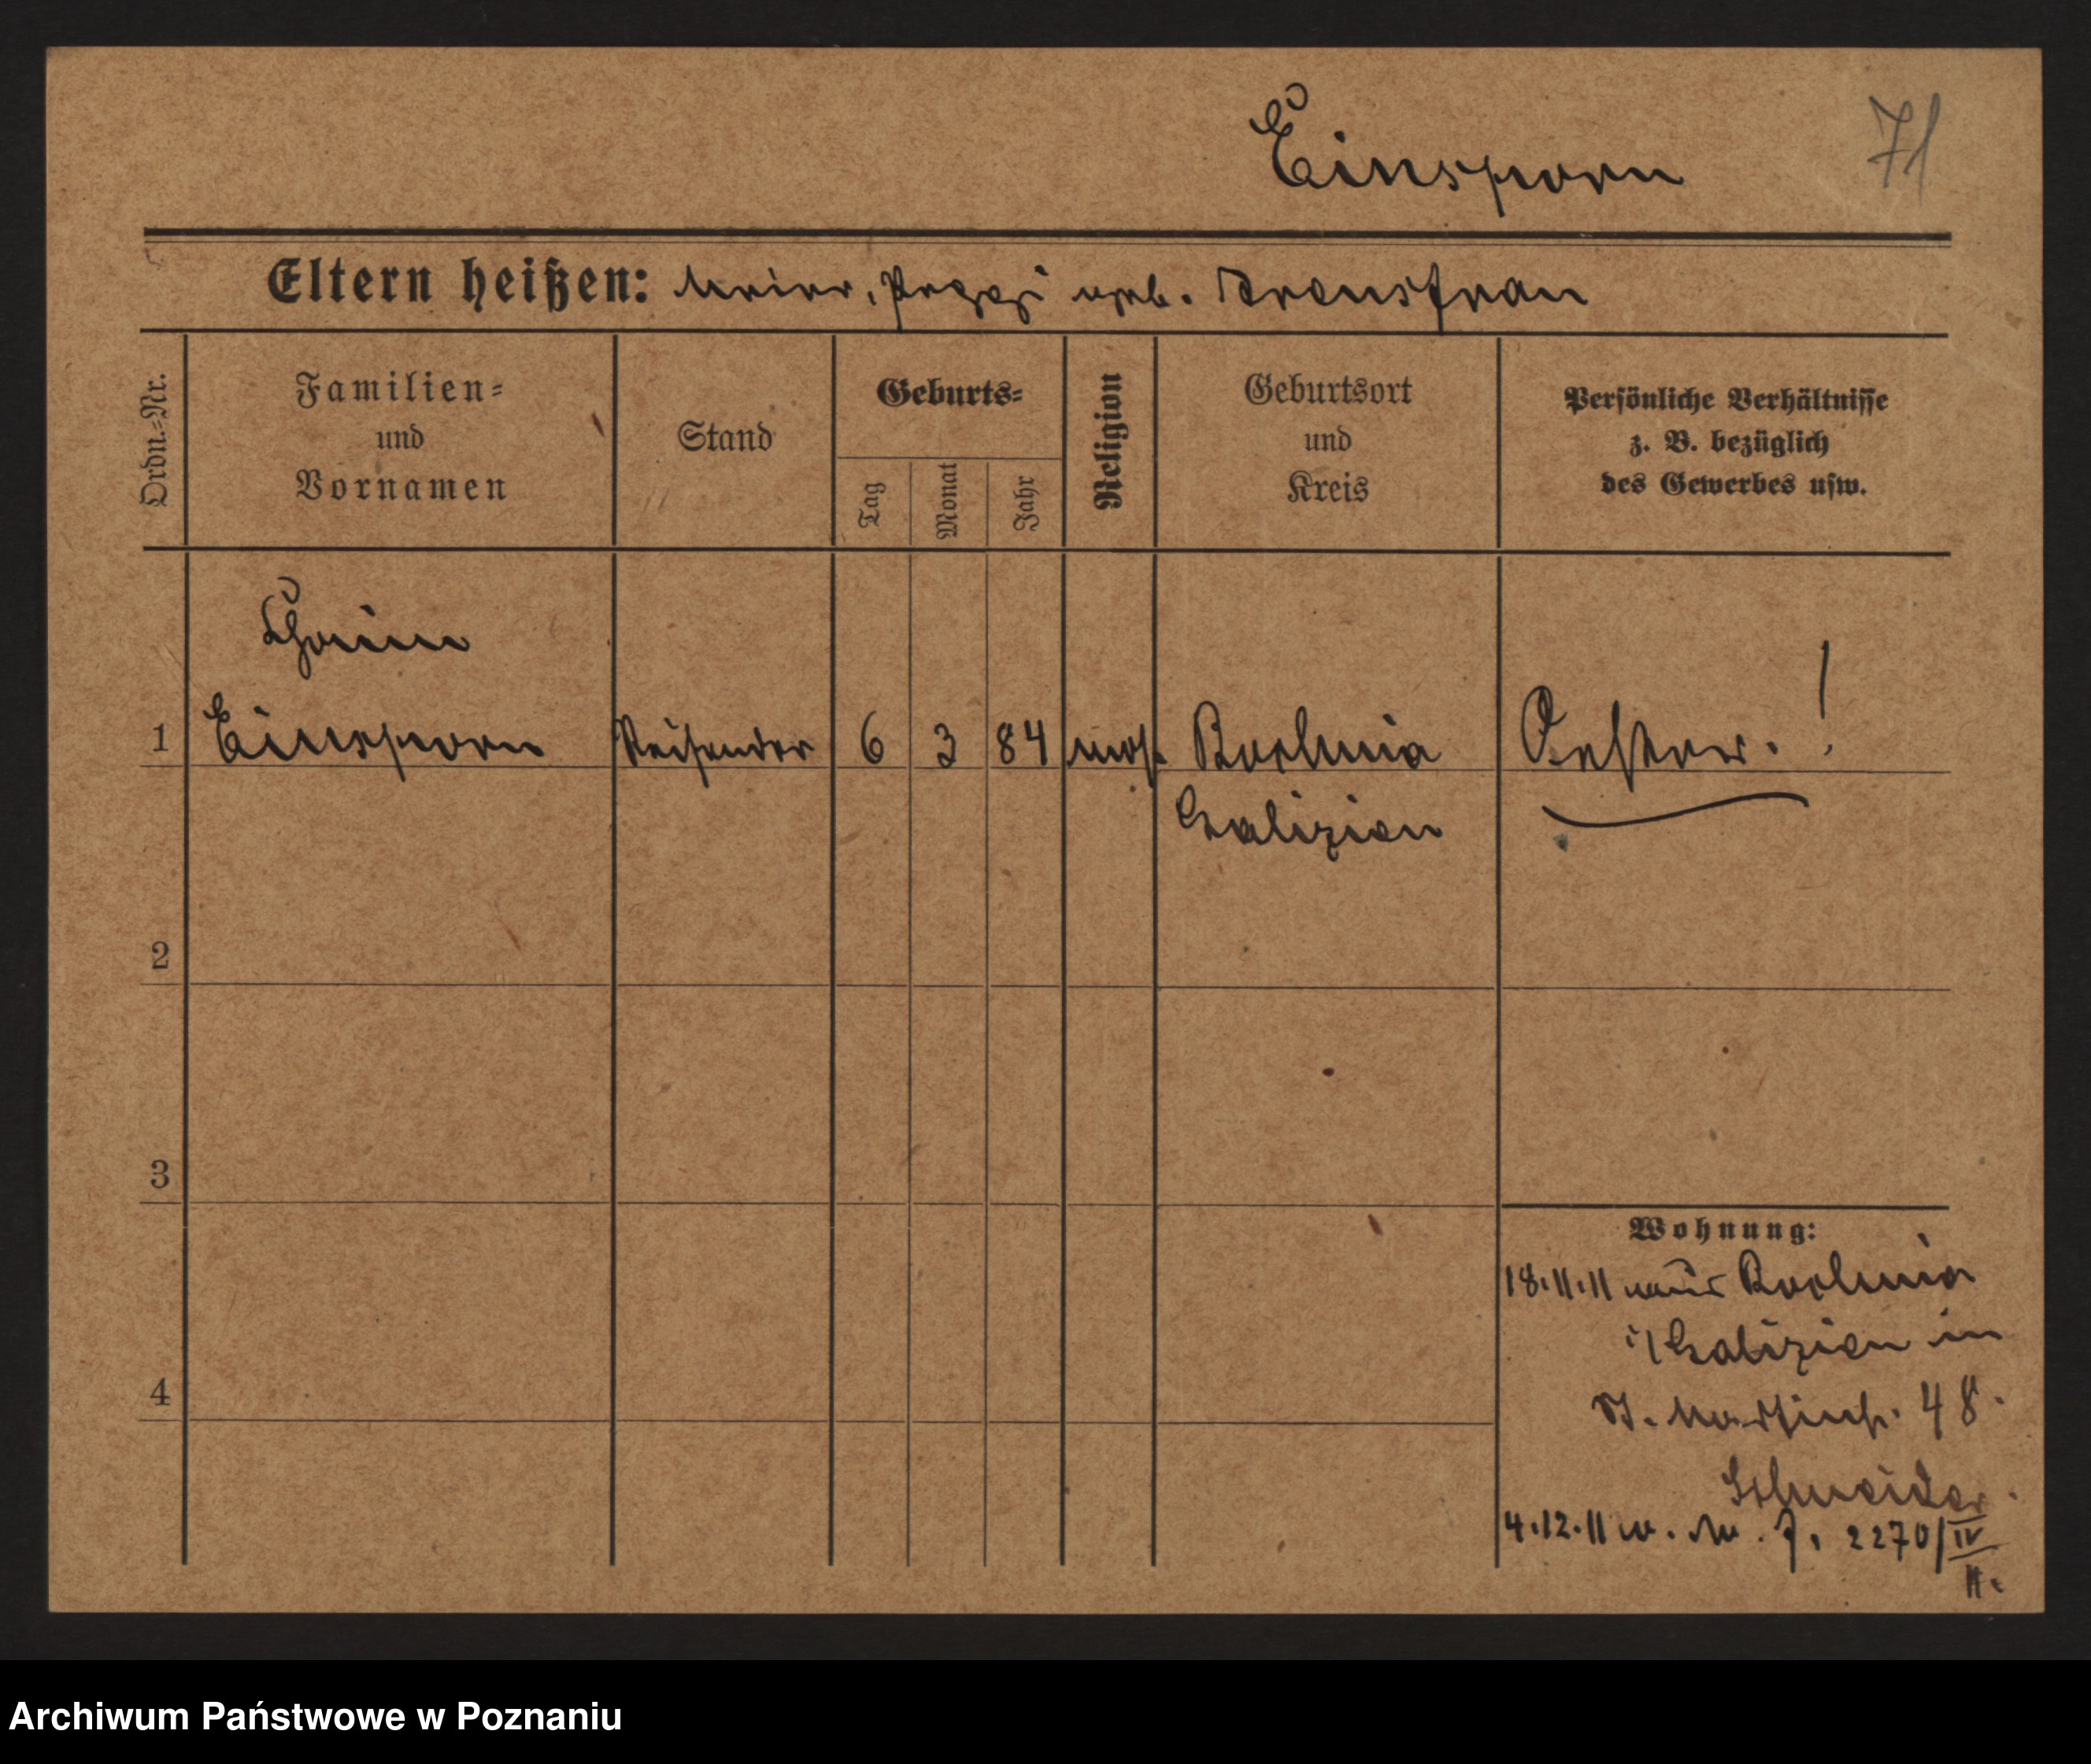 Einsporn
71
Eltern heißen: Meier, Pezzi geb.
Ordn.-Nr.
Familien-
und
Vornamen
Stand
Geburts-
Tag
Monat
Jahr
Religion
Geburtsort
und
Kreis
Persönliche Verhältnisse
z. B. bezüglich
des Gewerbes usw.
Chaim
1 Einsporn Reisender 6 3 84 mos. Bochnia Oester. !
Galizien
2
3
Wohnung:
18.11.11 aus Bochnia
i/Galizien in
4
St. Martinstr. 48.
Schneider.
4.12.11 w. M. J. 2270/IV
11.
Archiwum Państwowe w Poznaniu